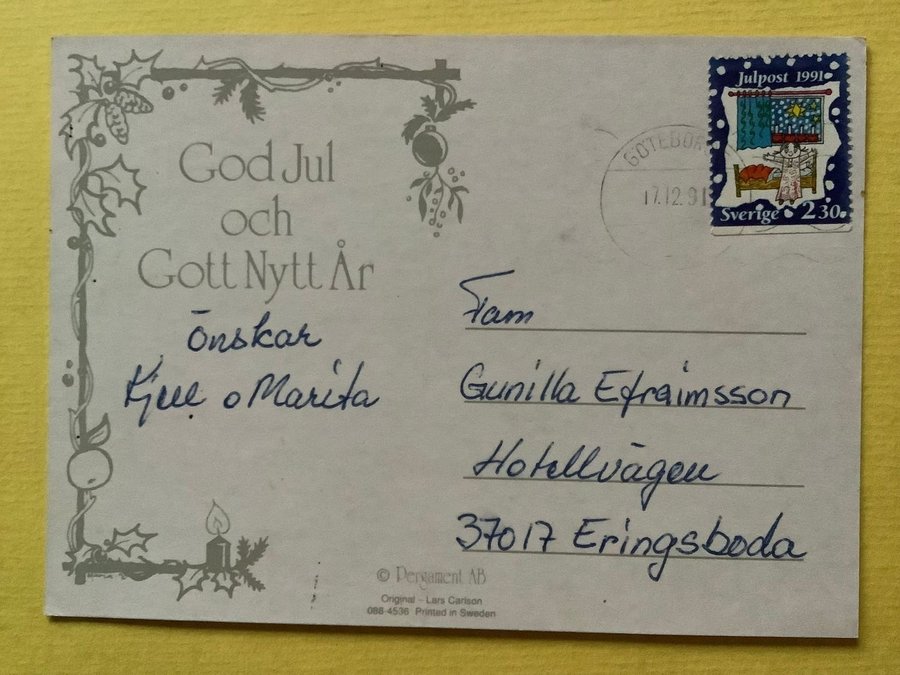 God Jul
och
Gott Nytt År
önskar
Kjell o Marita
Julpost 1991
Sverige 2.30
GÖTEBORG
17.12.91
Fam
Gunilla Efraimsson
Hotellvägen
37017 Eringsboda
© Pergament AB
Original – Lars Carlson
088-4536 Printed in Sweden